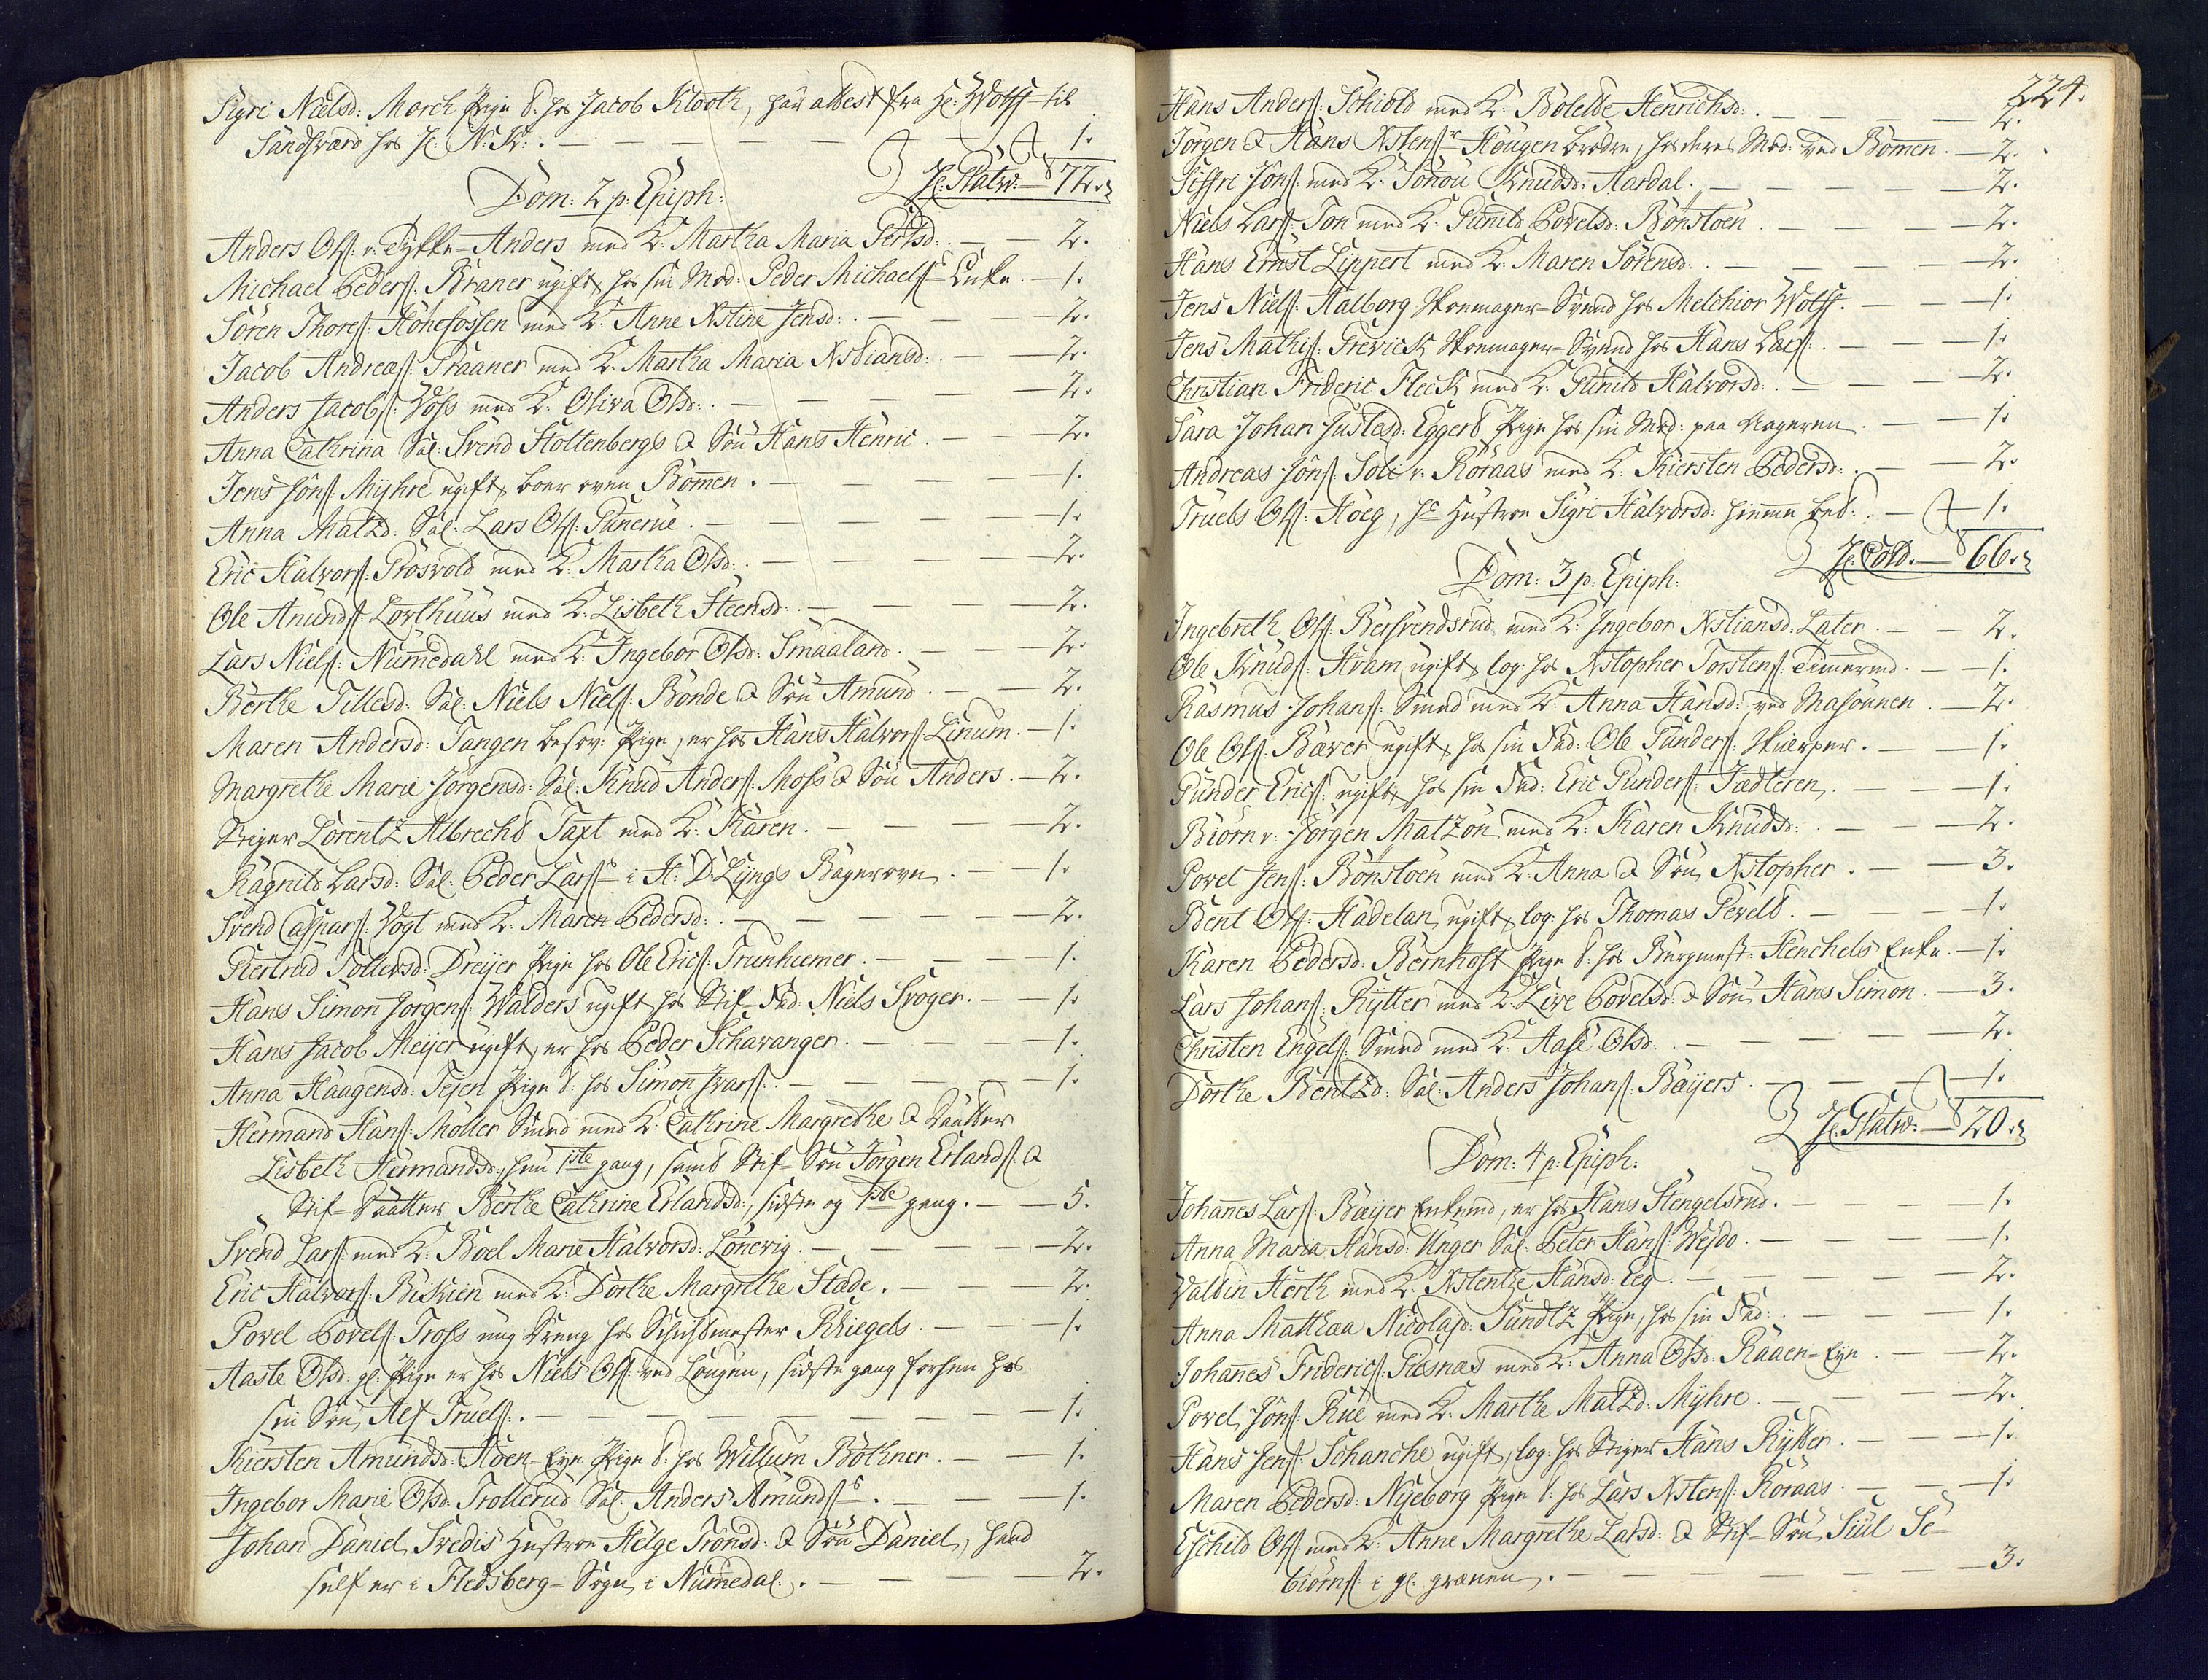 Sigri Nielsd: Morch Pige t: hos Jacob Klooth, har attest fra Hr: Wolff til
Sandsværd hos H: N: K: . — 1.
H: Platw: — 72.
Dom: 2 p: Epiph:
Anders Ols: v: Tykke-Anders med K: Martha Maria Gertsd: . — 2.
Michael Peders: Braner ugift, hos sin Mod: Peder Michaels: Enke. — 1.
Sören Thores: Hönefossen med K: Anne Xstine Jensd: . — 2.
Jacob Andreas: Traaner med K: Martha Maria Xstiansd: . — 2.
Anders Jacobs: Voss med K: Oliva Olsd: . — 2.
Anna Cathrina Sal: Svend Stoltenbergs & Sön Hans Henric. — 2.
Jens Jöns: Myhre ugift, boer oven Bommen. — 1.
Anna Matzd: Sal: Lars Ols: Gunerue. — 1.
Eric Halvors: Grosvold med K: Martha Olsd: . — 2.
Ole Anunds: Lovthuus med K: Lisbeth Steensd: . — 2.
Lars Niels: Nummedahl med K: Ingebor Olsd: Smaaland. — 2.
Berthe Tillesd: Sal: Niels Niels: Bonde & Sön Amund. — 2.
Maren Andersd: Tangen besov: Pige, er hos Hans Halvors: Linum. — 1.
Margrethe Marie Jörgensd: Sal: Knud Anders: Moss & Sön Anders. — 2.
Stiger Lorentz Albrecht Taxt med K: Karen. — 2.
Ragnild Larsd: Sal: Peder Lars: i H: D: Lyngs Bagerovn. — 1.
Svend Caspars: Vogt med K: Maren Pedersd: . — 2.
Giertrud Tollevsd: Dreyer Pige hos Ole Erics: Trunhiemer. — 1.
Hans Simon Jörgens: Walders ugift hos Stif-Fad: Niels Svoger. — 1.
Hans Jacob Meijer ugift, er hos Peder Schavanger. — 1.
Anna Haagensd: Tejen Pige t: hos Simon Ivars: . — 1.
Hermand Hans: Möller Smed med K: Cathrine Margrethe & Daatter
Lisbeth Hermandsd:, hun 1ste gang, samt Stif-Sön Jörgen Erlands: &
Stif-Daatter Berthe Cathrine Erlandsd:, sidste og 1ste gang. — 5.
Svend Lars: med K: Boel Marie Halvorsd: Lönevig. — 2.
Eric Halvors: Biskien med K: Dorthe Margrethe Stade. — 2.
Povel Povels: Tross ung Dreng hos Schichtmester Kriegels. — 1.
Aaste Olsd: gl: Pige er hos Niels Ols: ved Lougen, sidste gang forhen hos
sin Sön, Alf Truels: . — 1.
Kiersten Amundsd: Hoen-Eye Pige t: hos Willum Böthner. — 1.
Ingebor Marie Olsd: Trollerud Sal: Anders Amunds: . — 1.
Johan Daniel Svedis Hustroe Helge Tronsd: & Sön Daniel, hand
self er i Fledsberg-Sogn i Nummedal. — 2.
224.
Hans Anders: Schiold med K: Bolelde Henrichsd: . — 2.
Jörgen & Hans Xstens: Hougen brødre, hos deres Mod: ved Bommen. — 2.
Siffri Jöns: med K: Jönou Knudsd: Aardal. — 2.
Niels Lars: Ton med K: Gunild Povelsd: Bönstoen. — 2.
Hans Ernst Lippert med K: Maren Sörensd: . — 2.
Jens Niels: Aalborg Skomager-Svend hos Melchior Wolff. — 1.
Jens Mathis: Trevick Skomager-Svend hos Hans Lars: . — 1.
Christian Frideric Fleck med K: Gunild Halvorsd: . — 2.
Sara Johan Justasd: Eggert Pige hos sin Mod: paa Ageren. — 1.
Andreas Jöns: Soli v: Röraas med K: Kiersten Pedersd: . — 2.
Truels Ols: Höeg, hs Hustroe Sigri Halvorsd: hieme bet: . — 1.
H: Cold. — 66.
Dom: 3 p: Epiph:
Ingebreth Ols: Bersvendsrud med K: Ingebor Xstiansd: Later. — 2.
Ole Knuds: Hvam ugift, log: hos Xstopher Torstens: Timermd. — 1.
Rasmus Johans: Smed med K: Anna Hansd: ved Masounen. — 2.
Ole Ols: Bæver ugift, hos sin Fad: Ole Gunders: Skierper. — 1.
Gunder Erics: ugift, hos sin Fad: Eric Gunders: Jædteren. — 1.
Biörn v: Jörgen Matzön med K: Karen Knudsd: . — 2.
Povel Jens: Bönstoen med K: Anna & Sön Xstopher. — 3.
Bent Ols: Hadelan, ugift, log: hos Thomas Gevelt. — 1.
Karen Pedersd: Bernhoft Pige t: hos Burgmest: Henchels Enke. — 1.
Lars Johans: Rytter med K: Live Povelsd: & Sön Hans Simon. — 3.
Christen Engels: Smed med K: Aase Olsd: . — 2.
Dorthe Bentzd: Sal: Anders Johans: Bæyers. — 1.
H: Platw: — 20.
Dom: 4 p: Epiph:
Johanes Lars: Bæyer Enkemd, er hos Hans Stengelsrud. — 1.
Anna Maria Hansd: Unger Sal: Peter Hans: Wesdo. — 1.
Valdin Herth med K: Xstentze Hansd: Eeg. — 2.
Anna Mathæa Nicolajsd: Sundtz Pige, hos sin Fad: . — 1.
Johanes Friderics: Giesnas med K: Anna Olsd: Raaen-Eye. — 2.
Povel Jöns: Rue med K: Marthe Matzd: Myhre. — 2.
Hans Jens: Schanche ugift, log: hos Stiger Hans Rytter. — 1.
Maren Pedersd: Nyeborg Pige t: hos Lars Xstens: Röraas. — 1.
Eschild Ols: med K: Anne Margrethe Larsd: & Stif-Sön, Siul Se-
biörns: i gl: grænen. — 3.